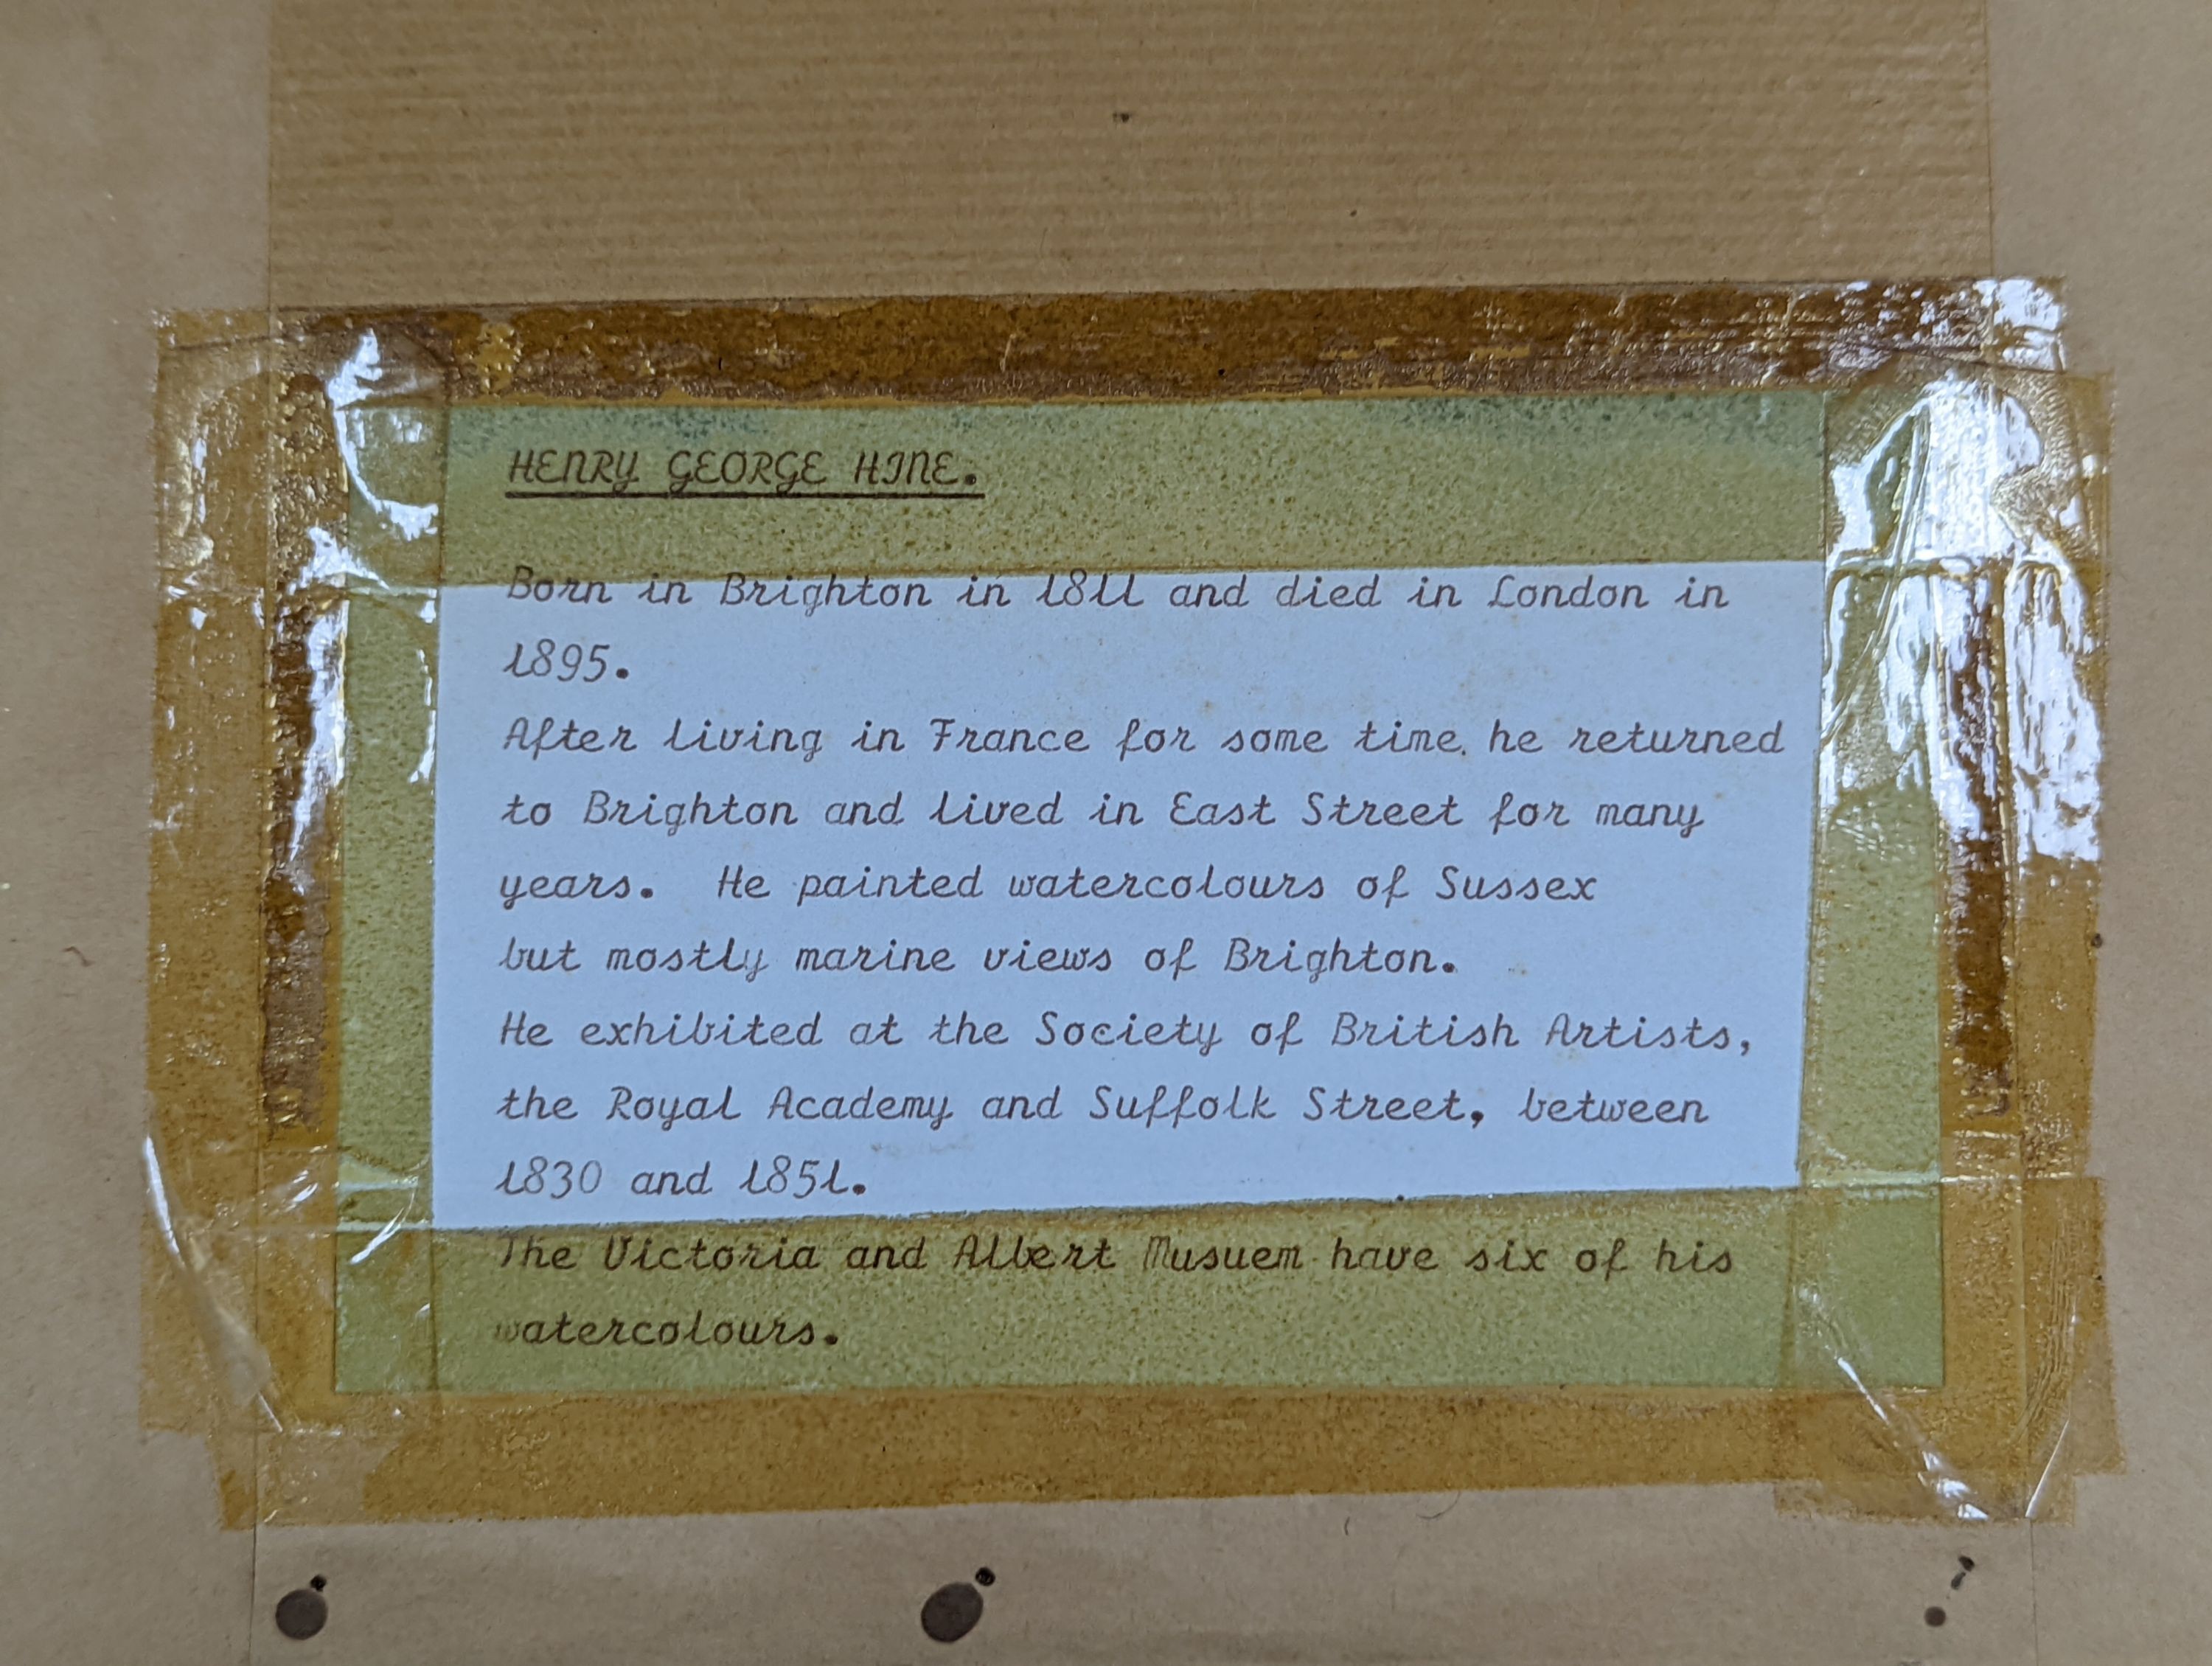 HENRY GEORGE HINE.
Born in Brighton in 1811 and died in London in
1895.
After living in France for some time, he returned
to Brighton and lived in East Street for many
years. He painted watercolours of Sussex
but mostly marine views of Brighton.
He exhibited at the Society of British Artists,
the Royal Academy and Suffolk Street, between
1830 and 1851.
The Victoria and Albert Musuem have six of his
watercolours.